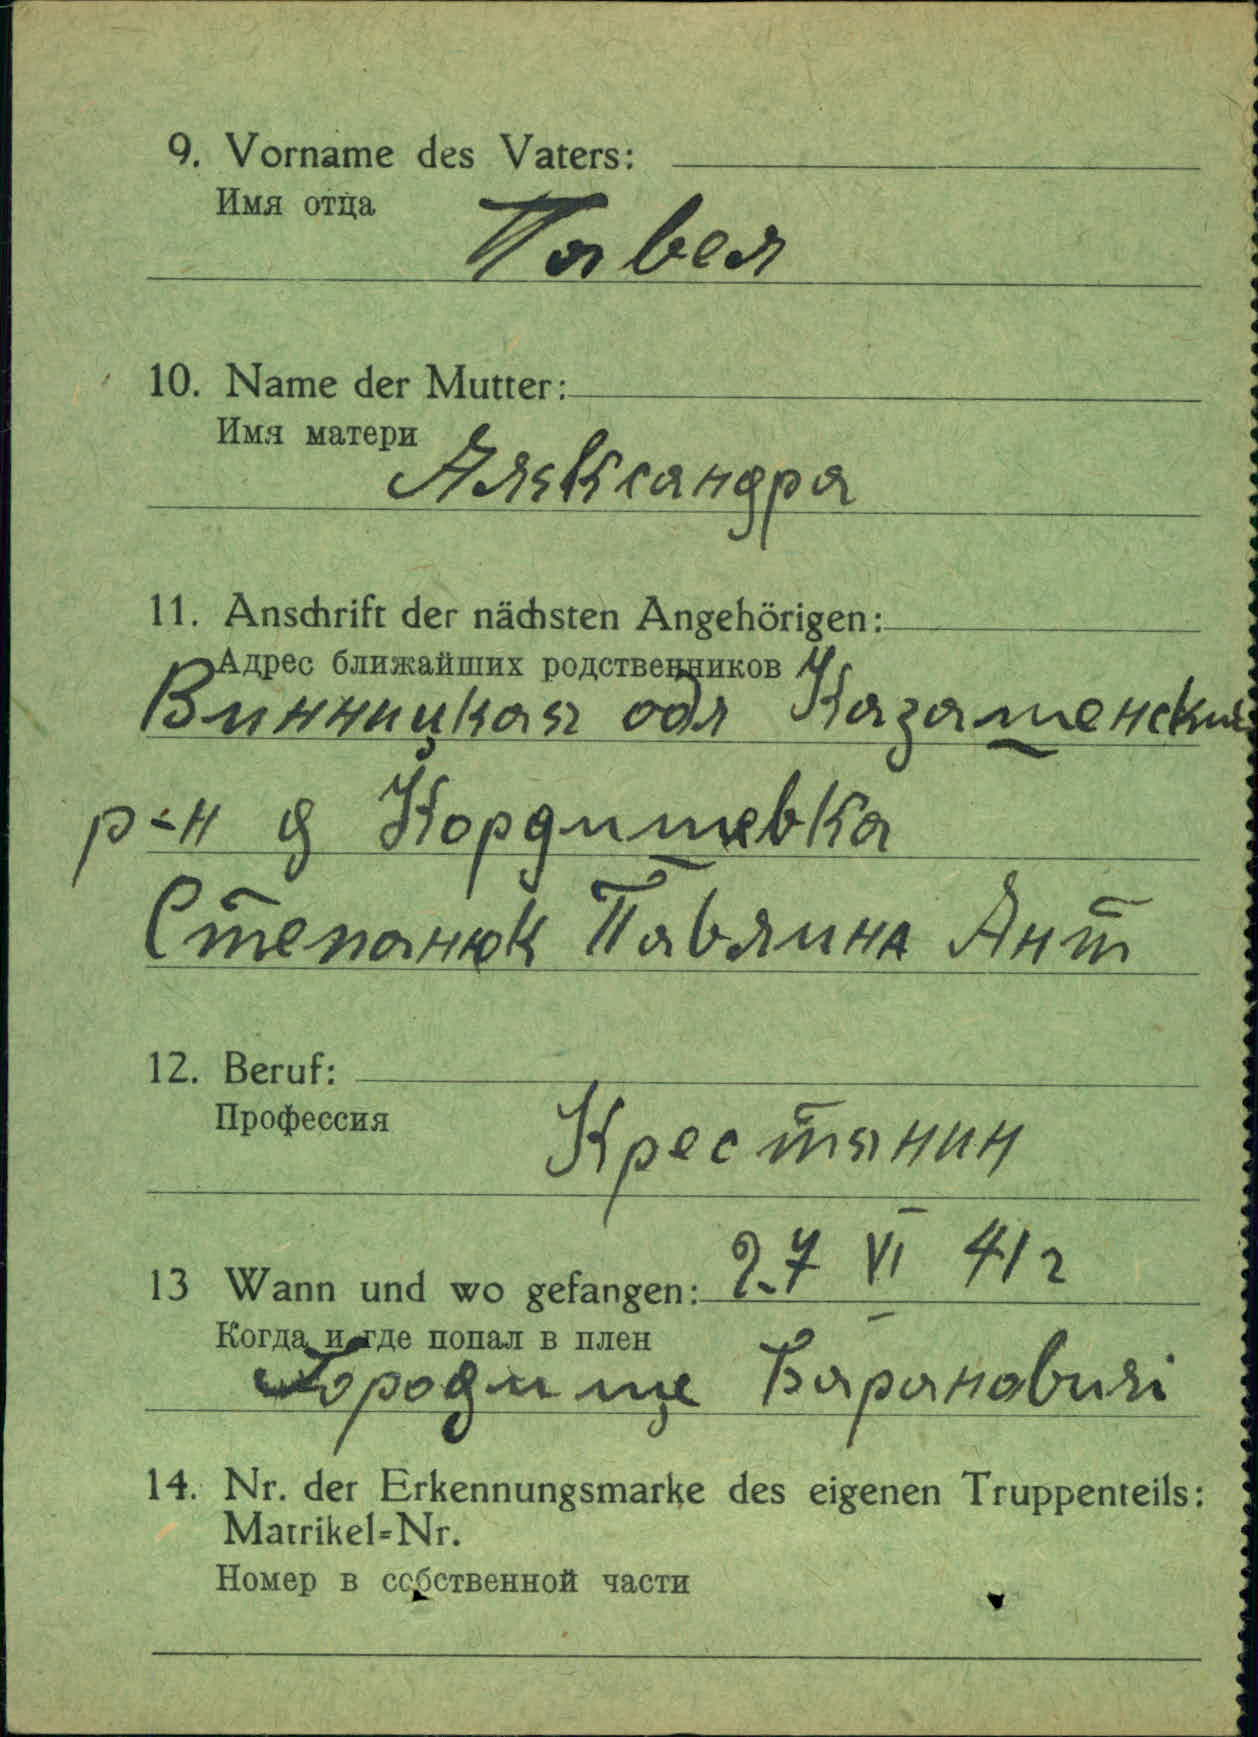 9. Vorname des Vaters:
Имя отца
Павел
10. Name der Mutter:
Имя матери
Александра
11. Anschrift der nächsten Angehörigen:
Адрес ближайших родственников
Винницкая обл Казатенский
р-н д Кордишевка
Степанюк Павлина Ант
12. Beruf:
Профессия
Крестянин
13 Wann und wo gefangen: 27 VI 41г
Когда и где попал в плен
Городище Барановичі
14. Nr. der Erkennungsmarke des eigenen Truppenteils:
Matrikel=Nr.
Номер в собственной части